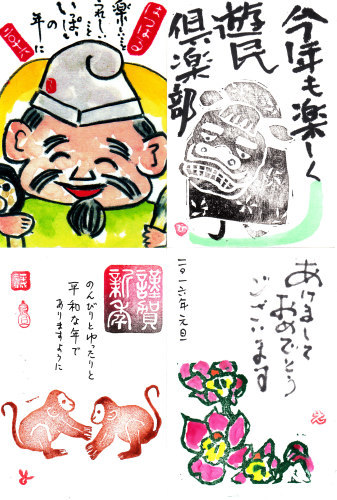 はつはる
楽しいこと
うれしいこと
いっぱい
の
年に
今年も楽しく
遊民
倶楽部
謹賀
新年
のんびりとゆったりと
平和な年で
ありますように
二〇一六年元旦
あけまして
おめでとう
ございます